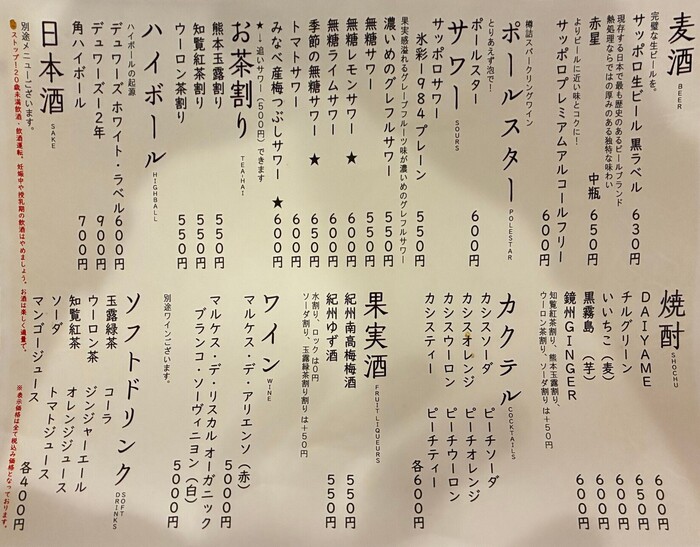 麦酒 BEER
完璧な生ビールを。
サッポロ生ビール 黒ラベル 630円
現存する日本で最も歴史のあるビールブランド
熱処理ならではの厚みのある独特な味わい
赤星 中瓶 650円
よりビールに近い味とコクに！
サッポロプレミアムアルコールフリー 600円
樽詰スパークリングワイン
ポールスター POLESTAR
とりあえず泡で
ポールスター 600円
サワー SOURS
サッポロサワー
氷彩1984 プレーン 550円
果実感溢れるグレープフルーツ味が濃いめのグレフルサワー
濃いめのグレフルサワー 550円
無糖サワー 550円
無糖レモンサワー ★ 600円
無糖ライムサワー 600円
季節の無糖サワー ★ 650円
トマトサワー 600円
みなべ産梅つぶしサワー ★ 600円
★↓追いサワー（500円）できます
お茶割り TEA-HAI
熊本玉露割り 550円
知覧紅茶割り 550円
ウーロン茶割り 550円
ハイボール HIGHBALL
ハイボールの起源
デュワーズ ホワイト・ラベル 600円
デュワーズ12年 900円
角ハイボール 700円
日本酒 SAKE
別途メニューございます。
焼酎 SHOCHU
DAIYAME 600円
チルグリーン 650円
いいちこ（麦） 600円
黒霧島（芋） 600円
鏡州GINGER 600円
知覧紅茶割り、熊本玉露割り、
ウーロン茶割り、ソーダ割りは＋50円
カクテル COCKTAILS
カシスソーダ ピーチソーダ
カシスオレンジ ピーチオレンジ
カシスウーロン ピーチウーロン
カシスティー ピーチティー
各600円
果実酒 FRUIT LIQUEURS
紀州南高梅梅酒 550円
紀州ゆず酒 550円
水割り、ロックは0円
ソーダ割り、玉露緑茶割り割り は＋50円
ワイン WINE
マルケス・デ・アリエンソ（赤） 5000円
マルケス・デ・リスカル オーガニック
ブランコ・ソーヴィニヨン（白） 5000円
別途ワインございます。
ソフトドリンク SOFT DRINKS
玉露緑茶 コーラ
ウーロン茶 ジンジャーエール
知覧紅茶 オレンジジュース
ソーダ トマトジュース
マンゴージュース
各400円
ストップ！20歳未満飲酒・飲酒運転。妊娠中や授乳期の飲酒はやめましょう。お酒は楽しく適量で。
※表示価格は全て税込み価格となっております。